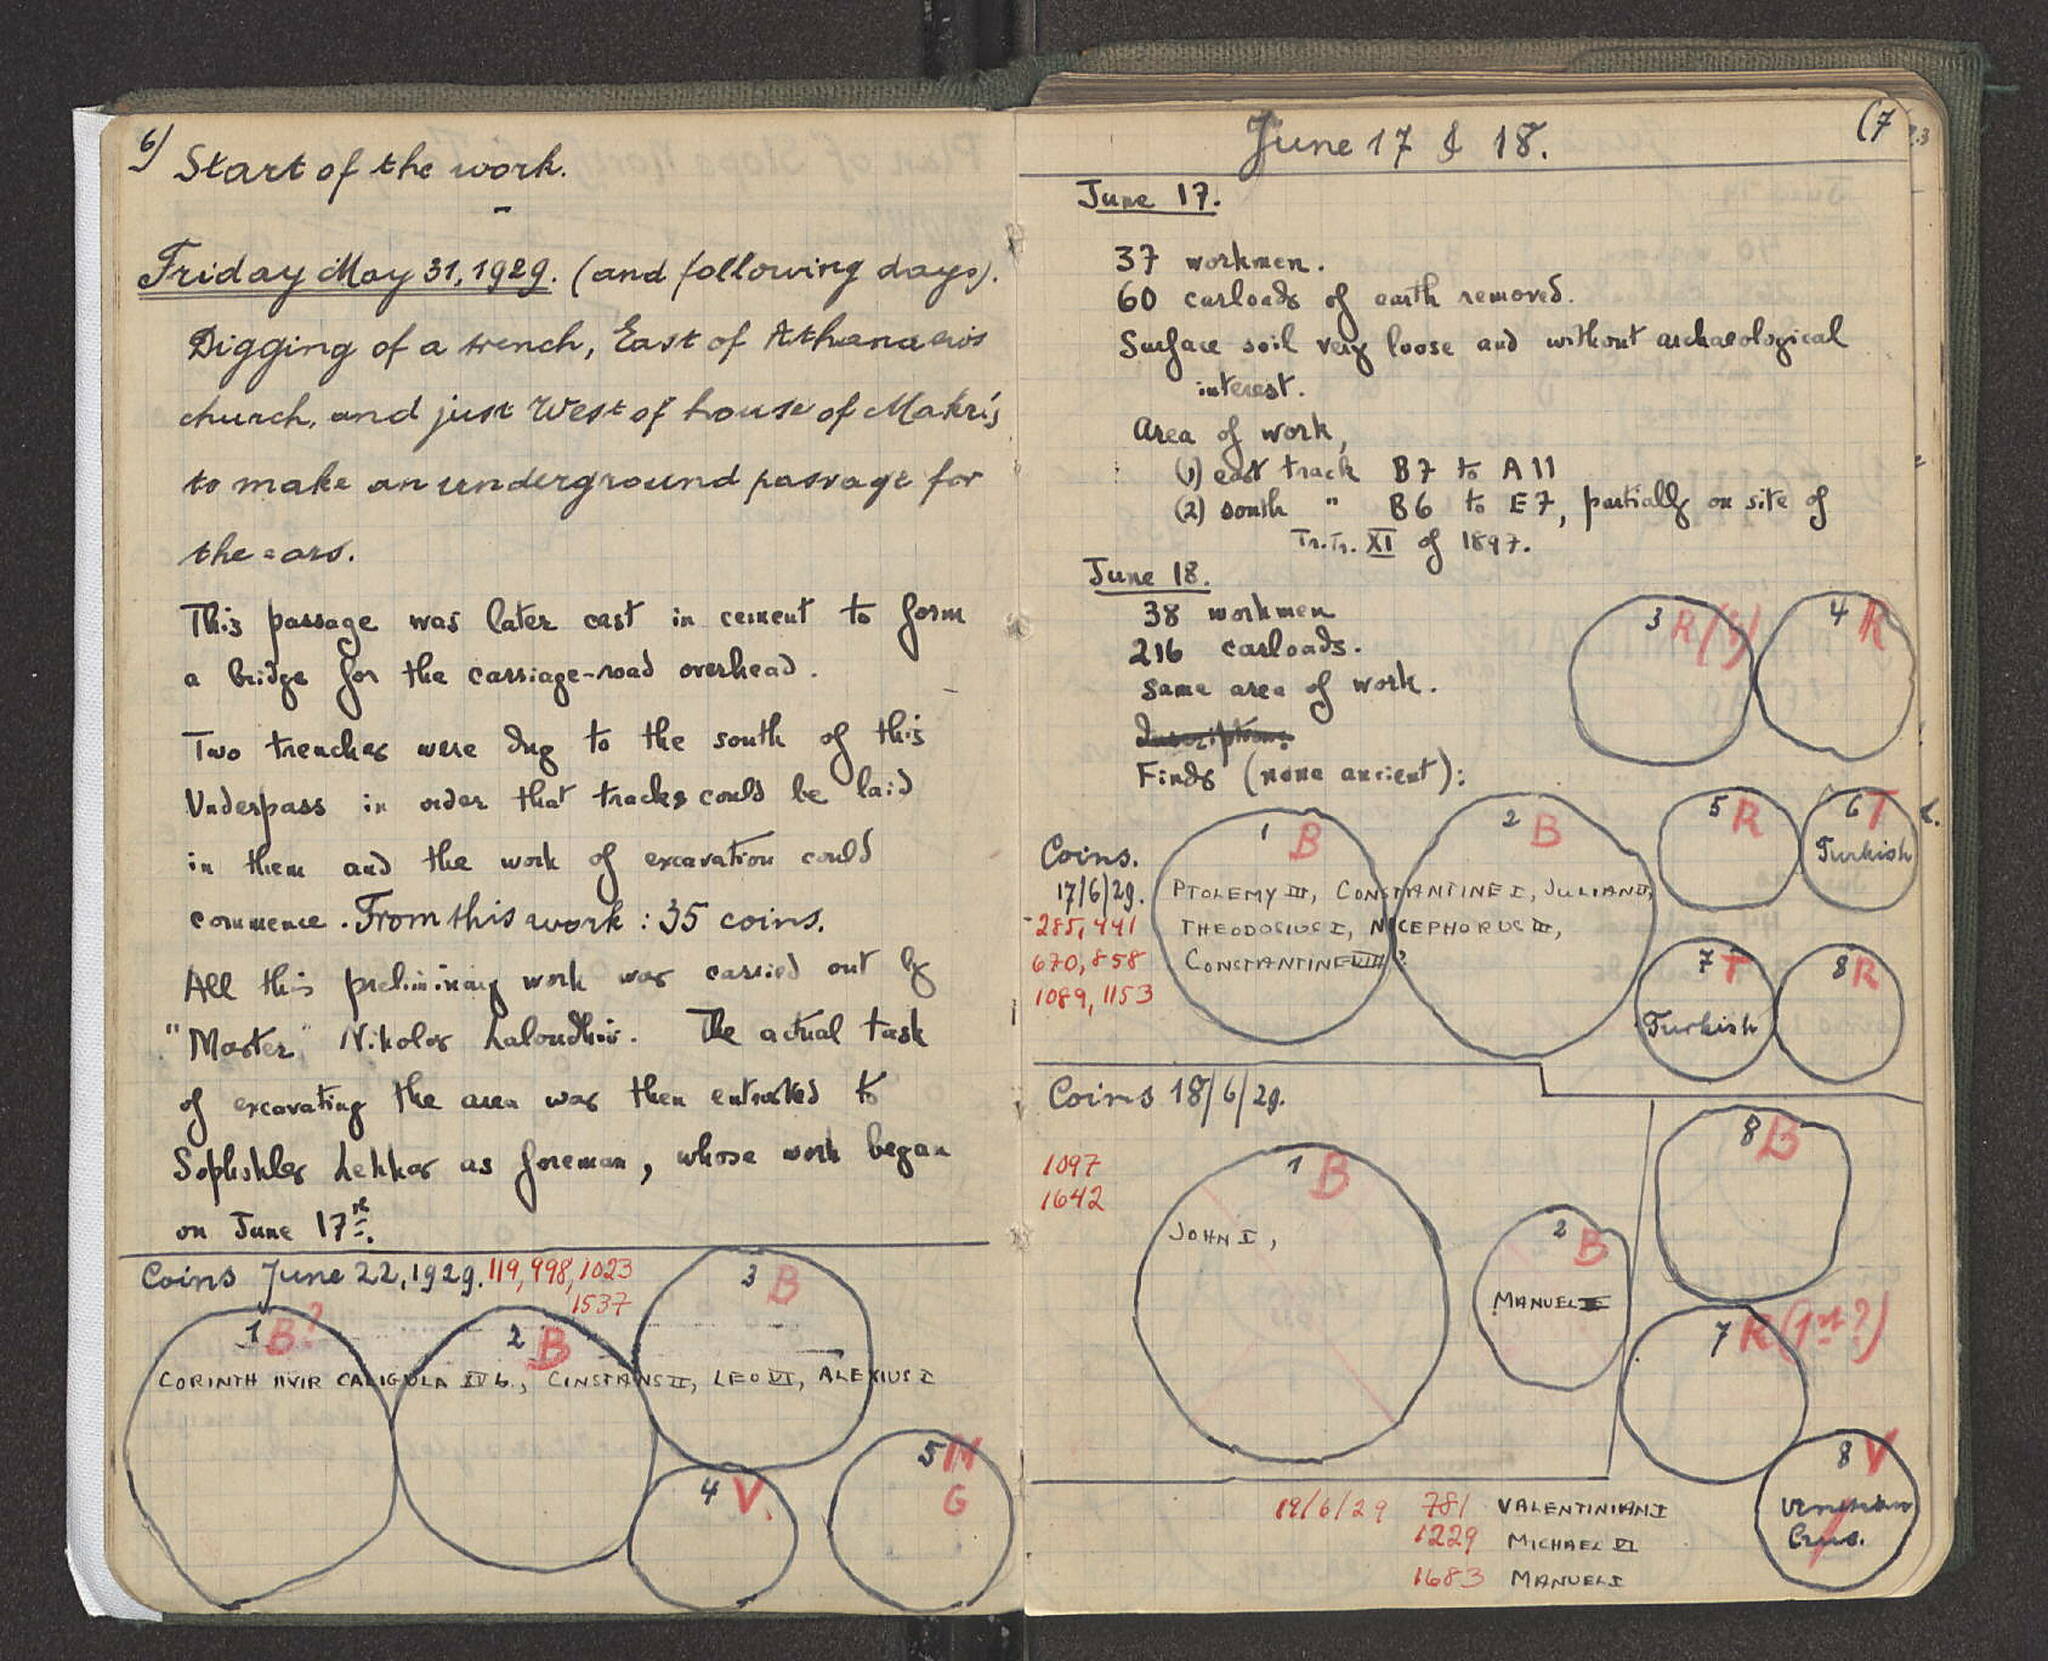 6)
Start of the work.
Friday May 31, 1929. (and following days).
Digging of a trench, East of
church, and just West of house of Makris
to make an underground passage for
the cars.
This passage was later cast in cement to form
a bridge for the carriage-road overhead.
Two trenches were dug to the south of this
Underpass in order that tracks could be laid
in them and the work of excavation could
commence. From this work: 35 coins.
All this preliminary work was carried out by
"Master" Nikolos
The actual task
of excavating the area was then entrusted to
Lekkas as foreman, whose work began
on June 17
Coins June 22, 1929. 119, 998, 1023
1537
1 B?
2 B
3 B
CORINTH IIVIR CALIGULA IV b., CINSTANS II, LEO VI, ALEXIUS I
4 V.
5 M
G
(7
June 17 & 18.
June 17.
37 workmen.
60 carloads of earth removed.
Surface soil very loose and without archaeological
interest.
Area of work,
(1) east track B7 to A11
(2) south " B6 to E7, partially on site of
Tr.Tr. XI of 1897.
June 18.
38 workmen
216 carloads.
Same area of work.
Inscriptions
Finds (none ancient):
3 R
4 R
5 R
6 T
Turkish
7 T
Turkish
8 R
Coins.
17/6/29.
1 B
2 B
PTOLEMY III, CONSTANTINE I, JULIAN II,
THEODOSIUS I, NICEPHORUS III,
CONSTANTINE VIII ?
285, 441
670, 858
1089, 1153
Coins 18/6/29.
1097
1642
1 B
JOHN I,
2 B
MANUEL
8 B
7 R (1st?)
8 V
19/6/29 781 VALENTINIAN I
1229 MICHAEL VI
1683 MANUEL I